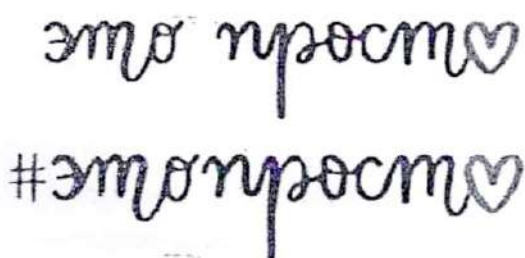 это прост♡
#этопрост♡